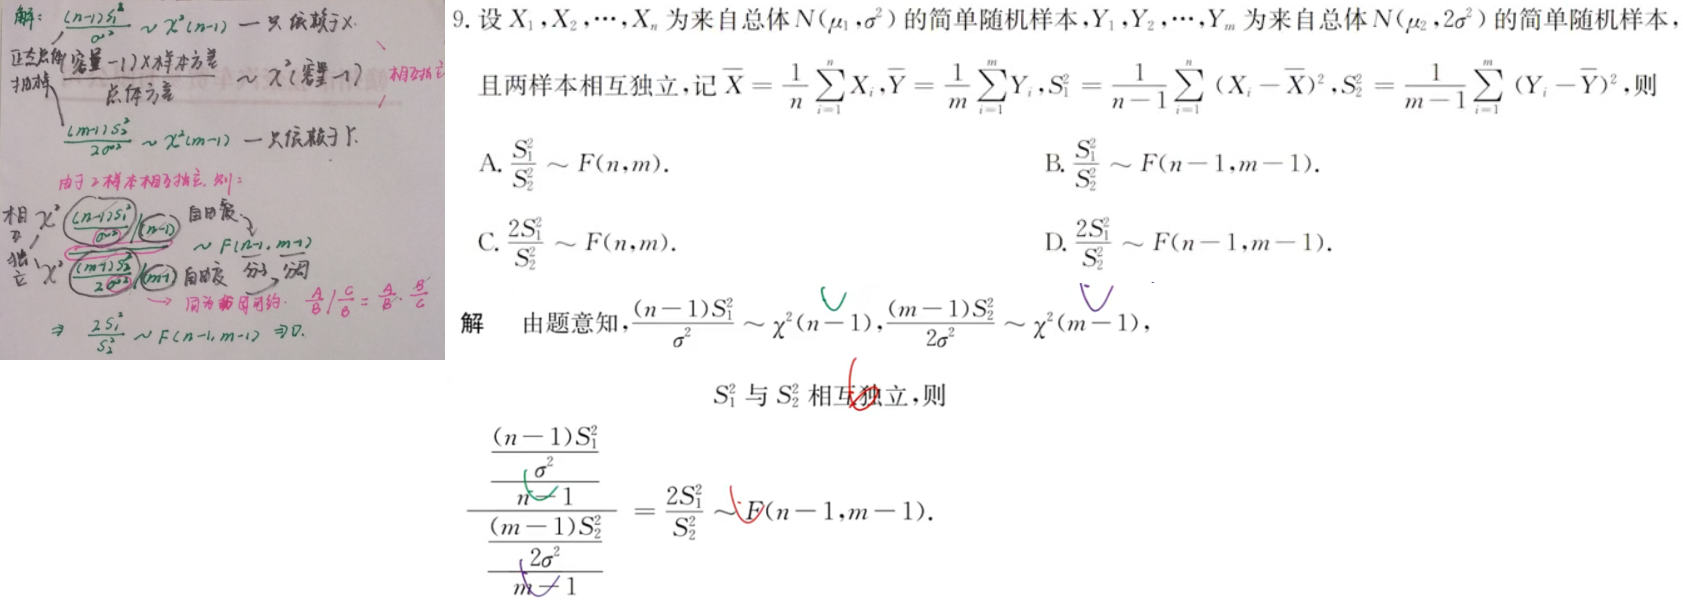 解: (n-1)S₁²/σ² ~ χ²(n-1) — 只依赖于X.
正态总体抽样 (容量-1)×样本方差/总体方差 ~ χ²(容量-1) 相互独立
(m-1)S₂²/2σ² ~ χ²(m-1) — 只依赖于Y.
由于2样本相互独立, 则:
相互独立 χ² (n-1)S₁²/σ² /(n-1) 自由度
~ F(n-1, m-1)
χ² (m-1)S₂²/2σ² /(m-1) 自由度 分子 分母
→ 同为 可约. A/B / C/B = A/B · B/C
⇒ 2S₁²/S₂² ~ F(n-1, m-1) ⇒ D.
9. 设 X₁,X₂,⋯,Xₙ 为来自总体 N(μ₁,σ²) 的简单随机样本,Y₁,Y₂,⋯,Yₘ 为来自总体 N(μ₂,2σ²) 的简单随机样本,
且两样本相互独立,记 X̄ = 1/n ∑ᵢ₌₁ⁿ Xᵢ, Ȳ = 1/m ∑ᵢ₌₁ᵐ Yᵢ, S₁² = 1/(n-1) ∑ᵢ₌₁ⁿ (Xᵢ - X̄)², S₂² = 1/(m-1) ∑ᵢ₌₁ᵐ (Yᵢ - Ȳ)², 则
A. S₁²/S₂² ~ F(n,m). B. S₁²/S₂² ~ F(n-1,m-1).
C. 2S₁²/S₂² ~ F(n,m). D. 2S₁²/S₂² ~ F(n-1,m-1).
解 由题意知, (n-1)S₁²/σ² ~ χ²(n-1), (m-1)S₂²/2σ² ~ χ²(m-1),
S₁² 与 S₂² 相互独立,则
((n-1)S₁²/σ²/(n-1)) / ((m-1)S₂²/2σ²/(m-1)) = 2S₁²/S₂² ~ F(n-1,m-1).